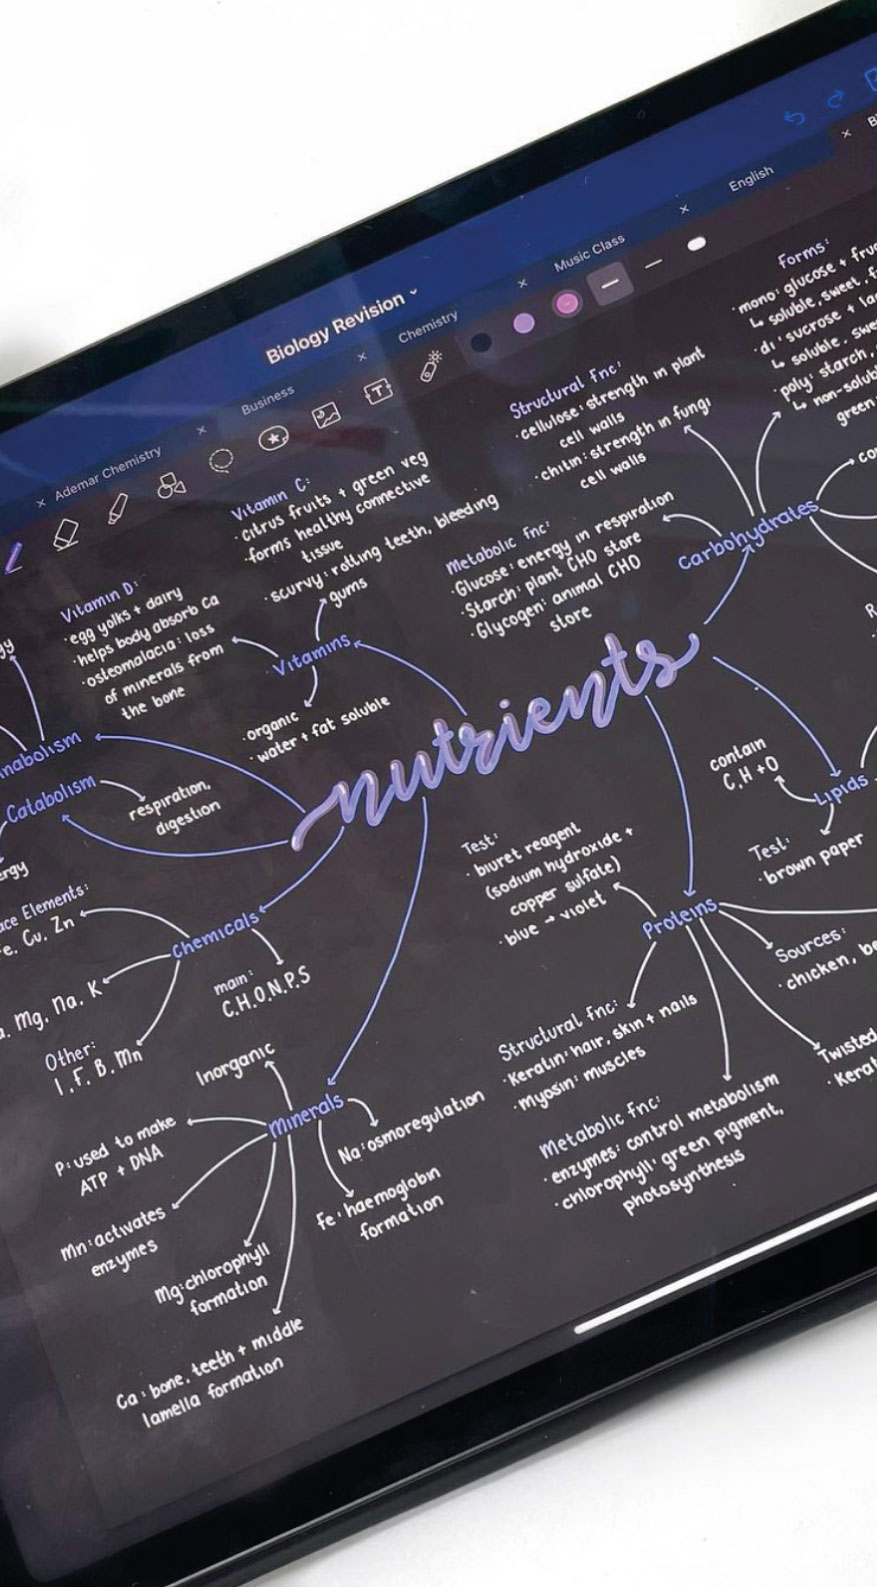 Biology Revision
Ademar Chemistry
Business
Chemistry
Music Class
English
nutrients
Vitamins
Vitamin C:
· citrus fruits + green veg
· forms healthy connective
tissue
· scurvy: rotting teeth, bleeding
gums
Vitamin D:
· egg yolks + dairy
· helps body absorb Ca
· osteomalacia: loss
of minerals from
the bone
· organic
· water + fat soluble
Catabolism
respiration,
digestion
Chemicals
Cu, Zn
Mg, Na, K
Other:
I, F, B, Mn
main:
C,H,O,N,P,S
Minerals
Inorganic
P: used to make
ATP + DNA
Mn: activates
enzymes
Mg: chlorophyll
formation
Ca: bone, teeth + middle
lamella formation
Fe: haemoglobin
formation
Na: osmoregulation
Carbohydrates
Structural Fnc:
· cellulose: strength in plant
cell walls
· chitin: strength in fungi
cell walls
Metabolic Fnc:
· Glucose: energy in respiration
· Starch: plant CHO store
· Glycogen: animal CHO
store
Forms:
· mono: glucose +
↳ soluble, sweet,
· di: sucrose +
↳ soluble,
· poly: starch,
↳
green
Lipids
contain
C,H + O
Test:
· brown paper
Proteins
Test:
· biuret reagent
(sodium hydroxide +
copper sulfate)
· blue → violet
Structural Fnc:
· Keratin: hair, skin + nails
· Myosin: muscles
Metabolic Fnc:
· enzymes: control metabolism
· chlorophyll: green pigment,
photosynthesis
Sources:
· chicken,
Twisted